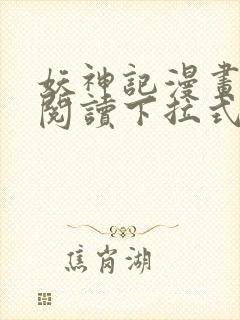 妖神記漫畫
閱讀下拉式
焦崗湖